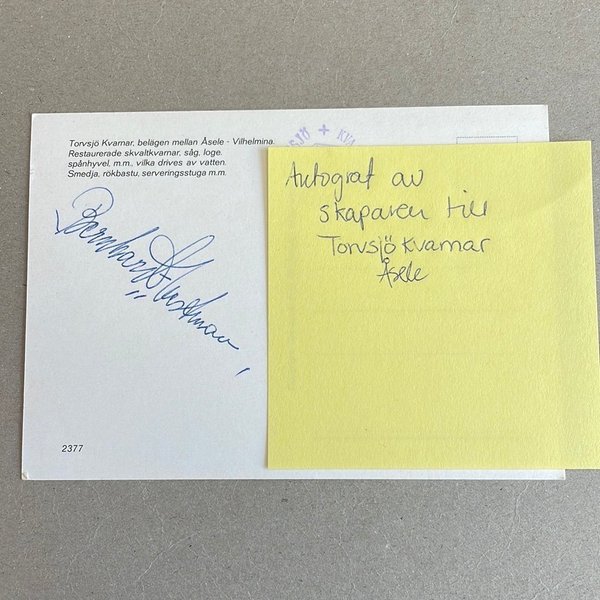 Torvsjö Kvarnar, belägen mellan Åsele - Vilhelmina.
Restaurerade skvaltkvarnar, såg, loge.
spånhyvel, m.m., vilka drives av vatten.
Smedja, rökbastu, serveringsstuga m.m.
SJÖ + KVA
Bernhard
2377
Autograf av
skaparen till
Torvsjö Kvarnar
Åsele